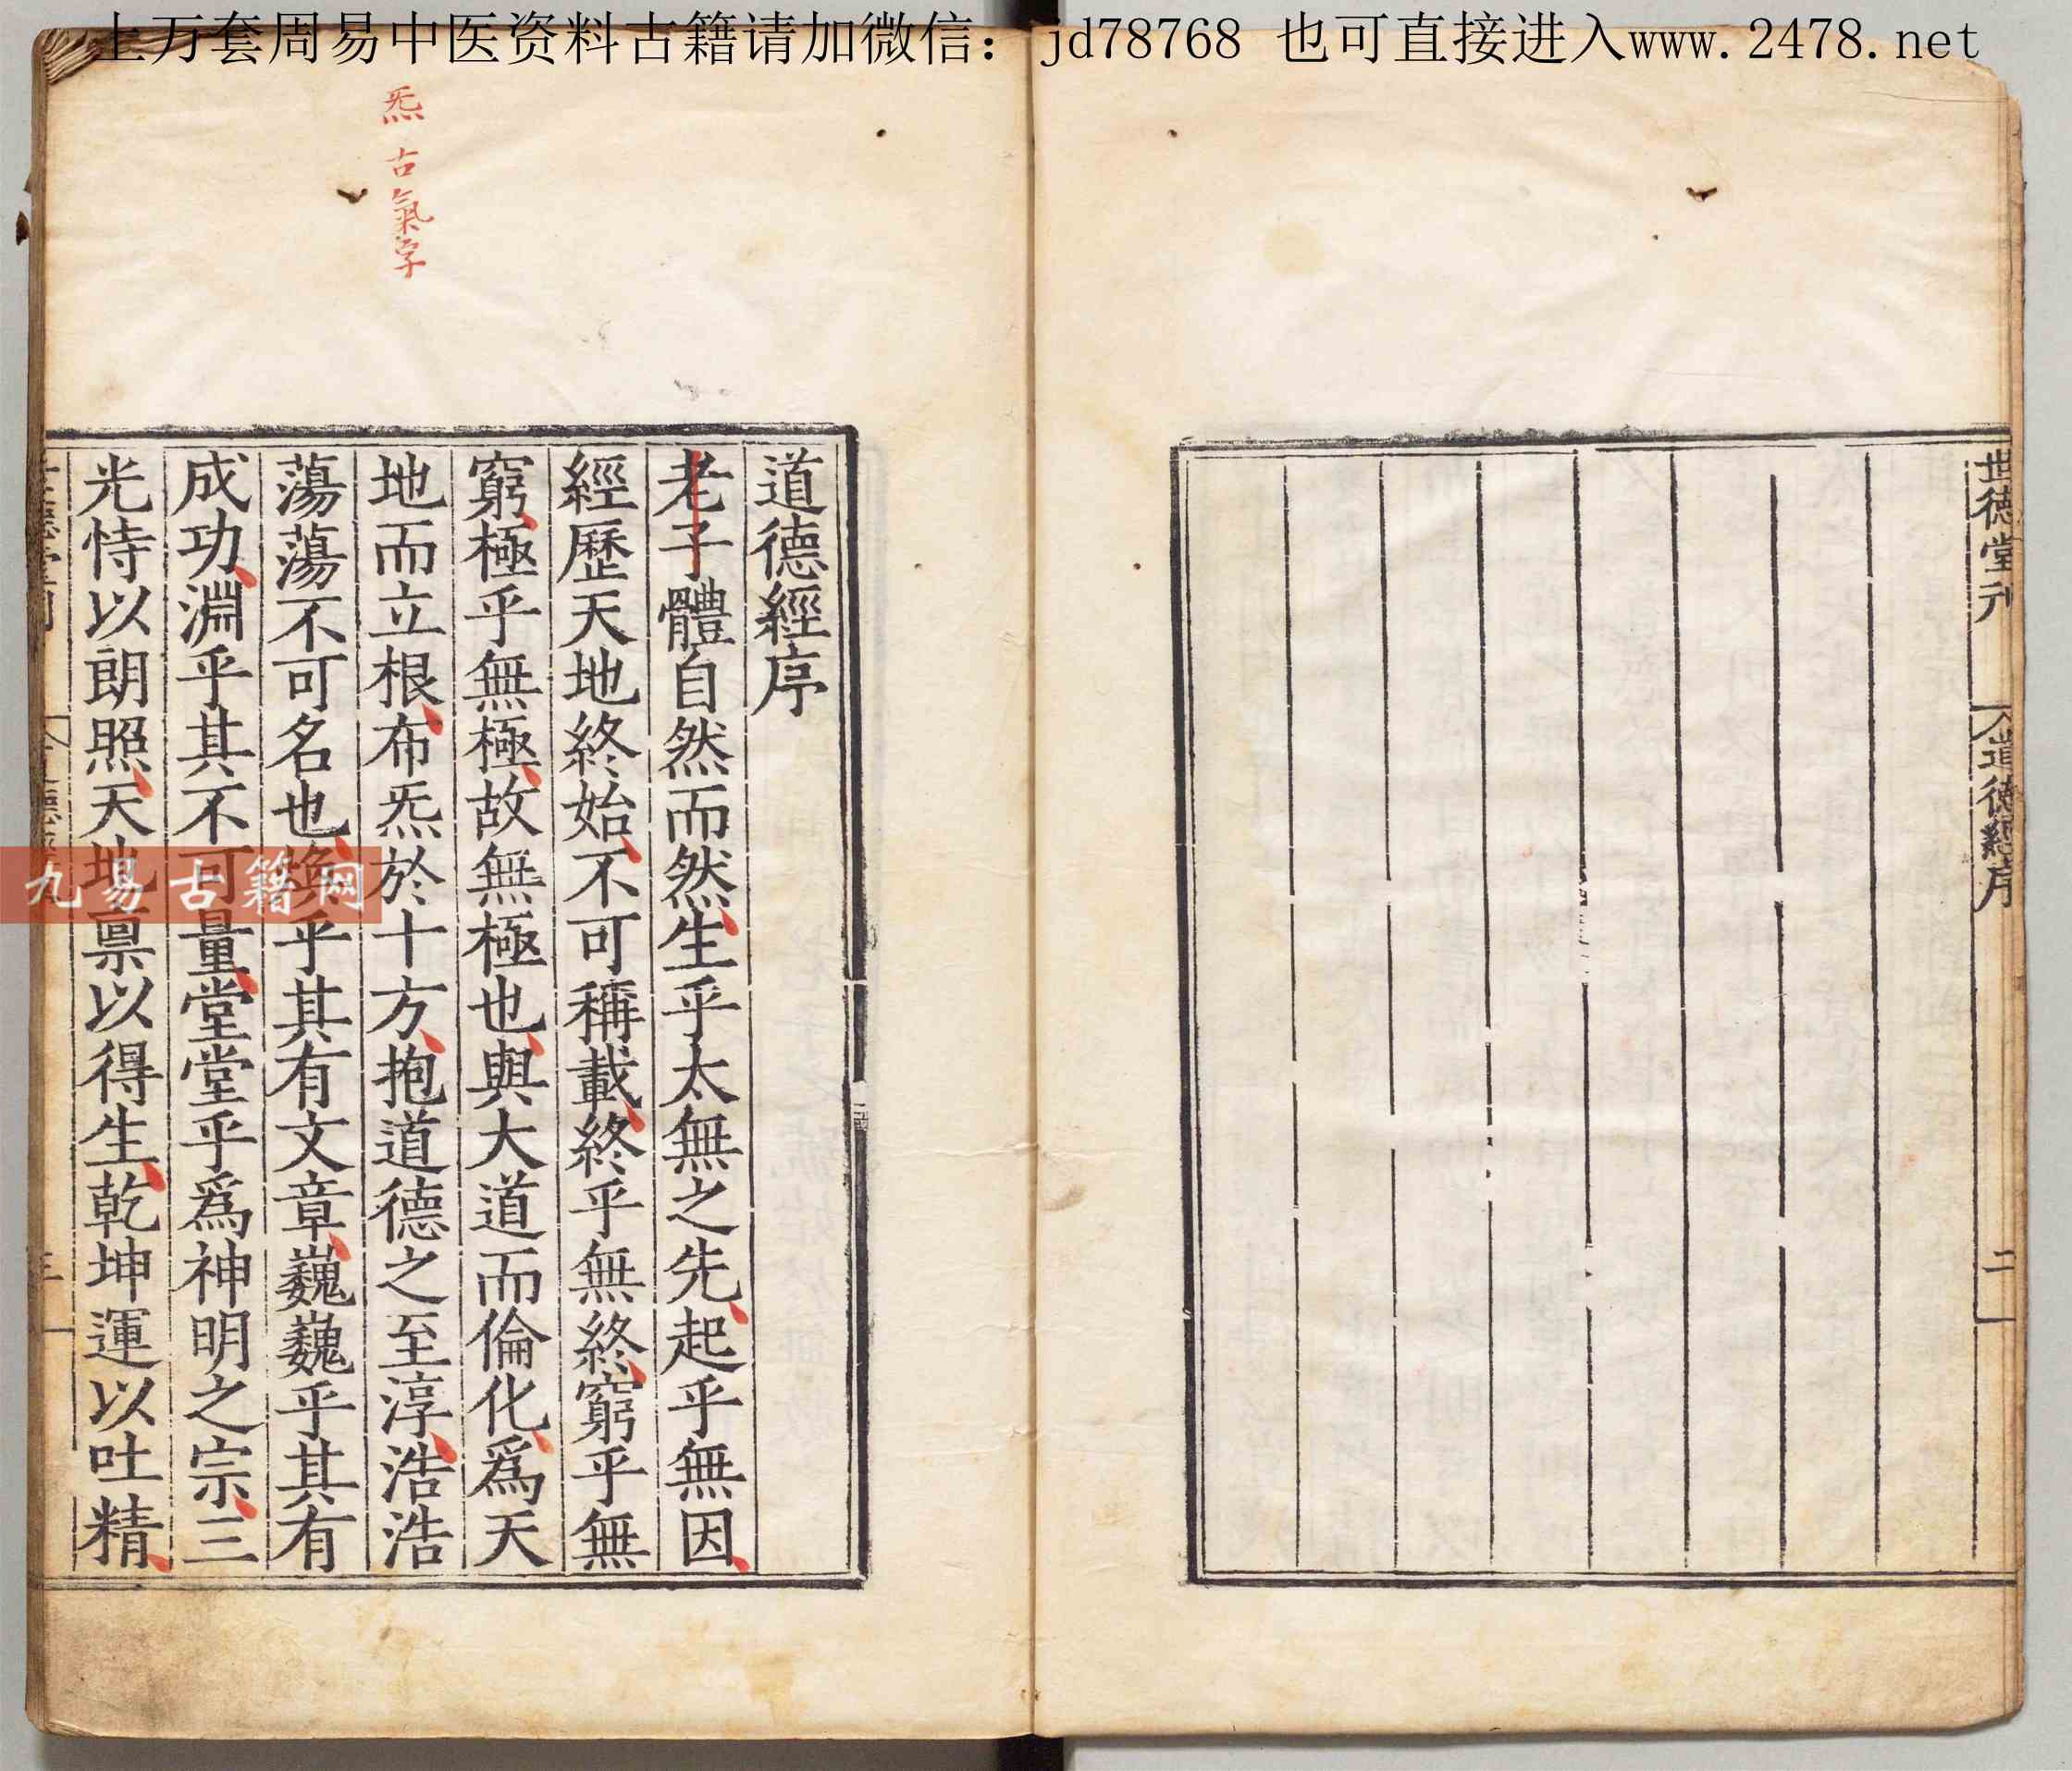 上万套周易中医资料古籍请加微信：jd78768 也可直接进入www.2478.net
世德堂刊
道德經序
二
炁古氣字
道德經序
老子體自然而然生乎太無之先起乎無因
經歷天地終始不可稱載終乎無終窮乎無
窮極乎無極故無極也與大道而倫化爲天
地而立根布炁於十方抱道德之至淳浩浩
蕩蕩不可名也煥乎其有文章巍巍乎其有
成功淵乎其不可量堂堂乎爲神明之宗三
光恃以朗照天地稟以得生乾坤運以吐精
九易古籍网